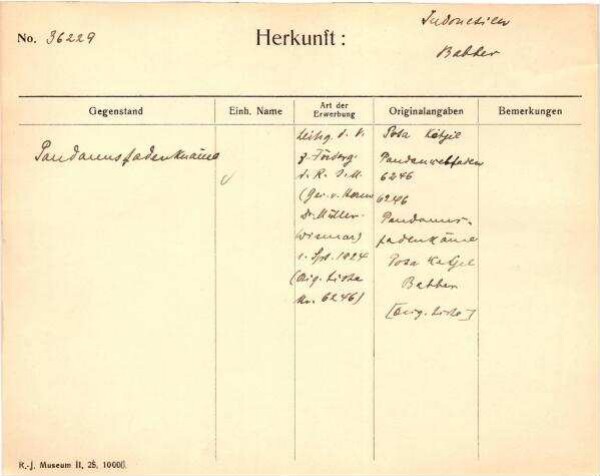 No. 36229
Herkunft:
Indonesien
Babber
Gegenstand
Einh. Name
Art der Erwerbung
Originalangaben
Bemerkungen
Pandanusfadenknäuel
Leihg. d. V.
z. Förderg.
d. R. J. M.
(Ges. v. Herrn
Dr. Müller-
Wismar)
1. Spt. 1924
(Orig. Liste
Nr. 6246)
6246
6246
Pandanus-
Babber
[Orig. Liste]
R.-J. Museum II, 25, 10000.